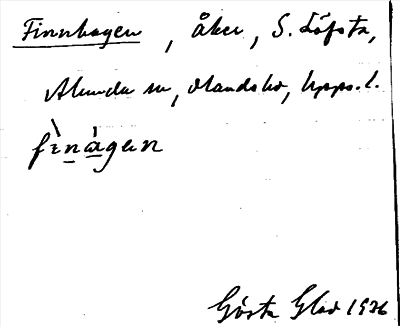 Finnhagen, åker, S. Löfsta,
Alunda sn, Olands hd, Upps. l.
fìnágan
Gösta Glad 1936